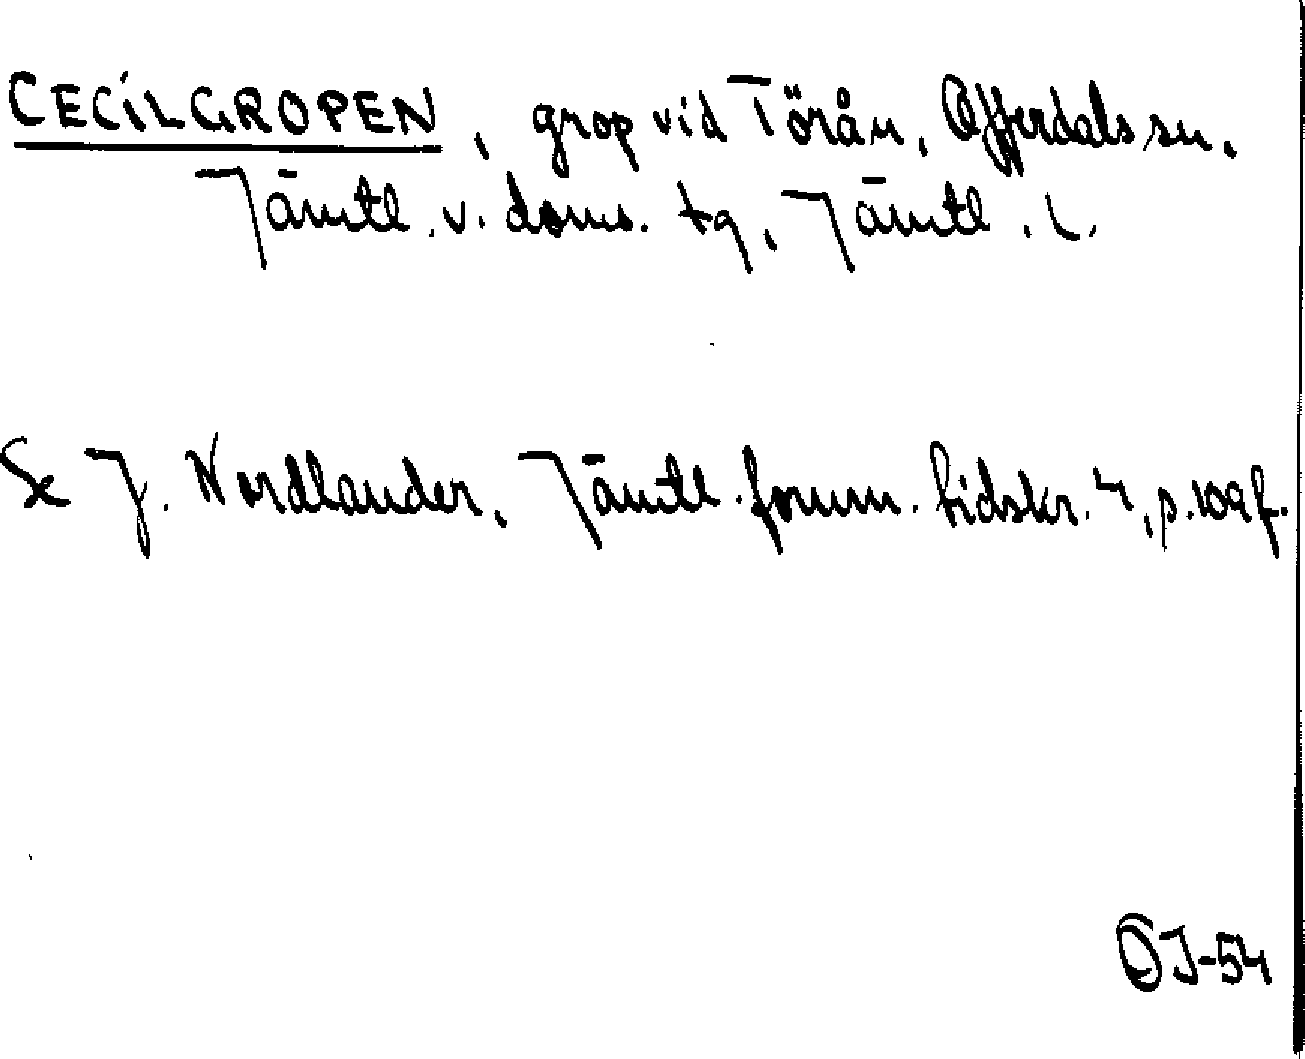 CECILGROPEN, grop vid Törån, Offerdals sn,
Jämtl. v. doms. tg, Jämtl. l.
Se J. Nordlander, Jämtl. fornm. tidskr. 4, p. 109 f.
OJ-54